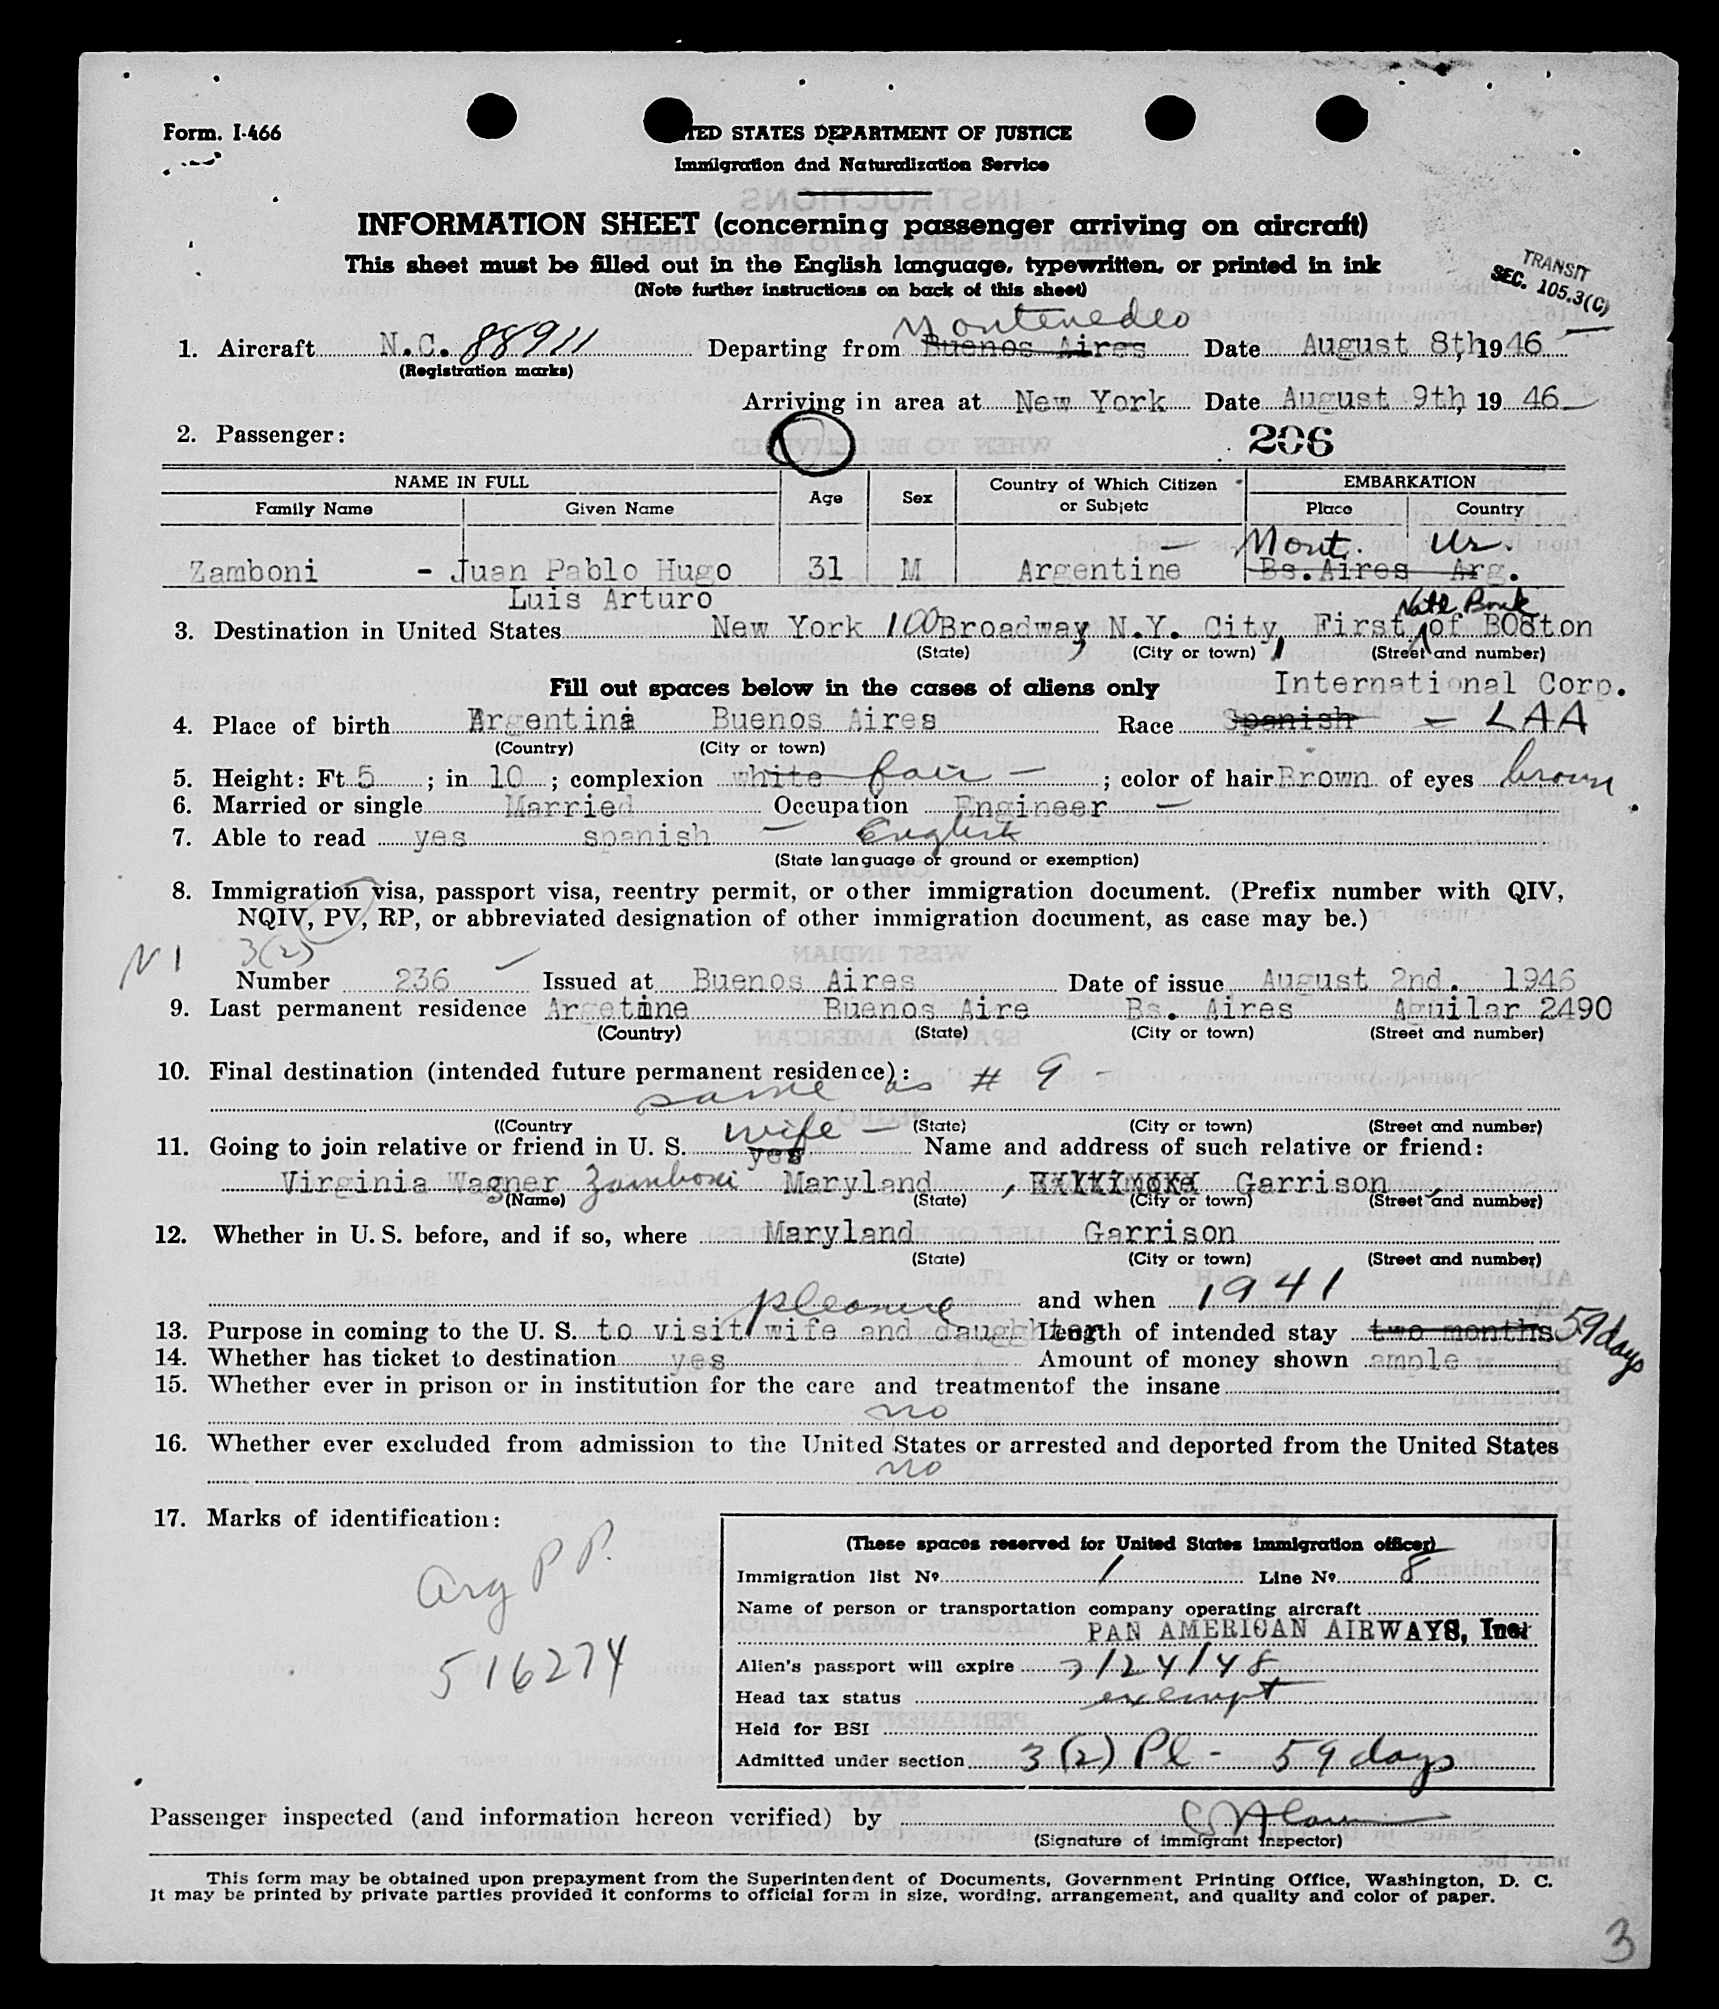 Form. I-466
TED STATES DEPARTMENT OF JUSTICE
Immigration and Naturalization Service
INFORMATION SHEET (concerning passenger arriving on aircraft)
This sheet must be filled out in the English language, typewritten, or printed in ink
(Note further instructions on back of this sheet)
TRANSIT
SEC. 105.3(C)
Montevedeo
1. Aircraft N.C. 88911 Departing from Buenos Aires Date August 8th, 1946
(Registration marks)
Arriving in area at New York Date August 9th, 19 46
2. Passenger:
206
NAME IN FULL Age Sex Country of Which Citizen or Subjetc EMBARKATION
Family Name Given Name Place Country
Mont. Ur.
Zamboni - Juan Pablo Hugo 31 M Argentine Bs.Aires Arg.
Luis Arturo
Natl Bank
3. Destination in United States New York 100 Broadway, N.Y. City, First of BOston
(State) (City or town) (Street and number)
Fill out spaces below in the cases of aliens only International Corp.
4. Place of birth Argentina Buenos Aires Race Spanish - LAA
(Country) (City or town)
5. Height: Ft 5 ; in 10 ; complexion white fair - ; color of hair Brown of eyes brown
6. Married or single Married Occupation Engineer
7. Able to read yes spanish - English
(State language or ground or exemption)
8. Immigration visa, passport visa, reentry permit, or other immigration document. (Prefix number with QIV,
NQIV, PV, RP, or abbreviated designation of other immigration document, as case may be.)
N 1 3(2)
Number 236 Issued at Buenos Aires Date of issue August 2nd. 1946
9. Last permanent residence Argetine Buenos Aire Bs. Aires Aguilar 2490
(Country) (State) (City or town) (Street and number)
10. Final destination (intended future permanent residence):
same as # 9 -
((Country (State) (City or town) (Street and number)
wife -
11. Going to join relative or friend in U. S. yes Name and address of such relative or friend:
Virginia Wagner Zamboni Maryland , Garrison
(Name) (State) (City or town) (Street and number)
12. Whether in U. S. before, and if so, where Maryland Garrison
(State) (City or town) (Street and number)
pleasure and when 1941
13. Purpose in coming to the U. S. to visit wife and daughter Length of intended stay two months 59 days
14. Whether has ticket to destination yes Amount of money shown ample
15. Whether ever in prison or in institution for the care and treatmentof the insane
no
16. Whether ever excluded from admission to the United States or arrested and deported from the United States
no
17. Marks of identification:
Arg P P.
516274
(These spaces reserved for United States immigration officer)
Immigration list No. 1 Line No. 8
Name of person or transportation company operating aircraft
PAN AMERICAN AIRWAYS, Inc.
Alien's passport will expire 7/24/48
Head tax status exempt
Held for BSI
Admitted under section 3(2) Pl - 59 days
Passenger inspected (and information hereon verified) by
(Signature of immigrant inspector)
This form may be obtained upon prepayment from the Superintendent of Documents, Government Printing Office, Washington, D. C.
It may be printed by private parties provided it conforms to official form in size, wording, arrangement, and quality and color of paper.
3